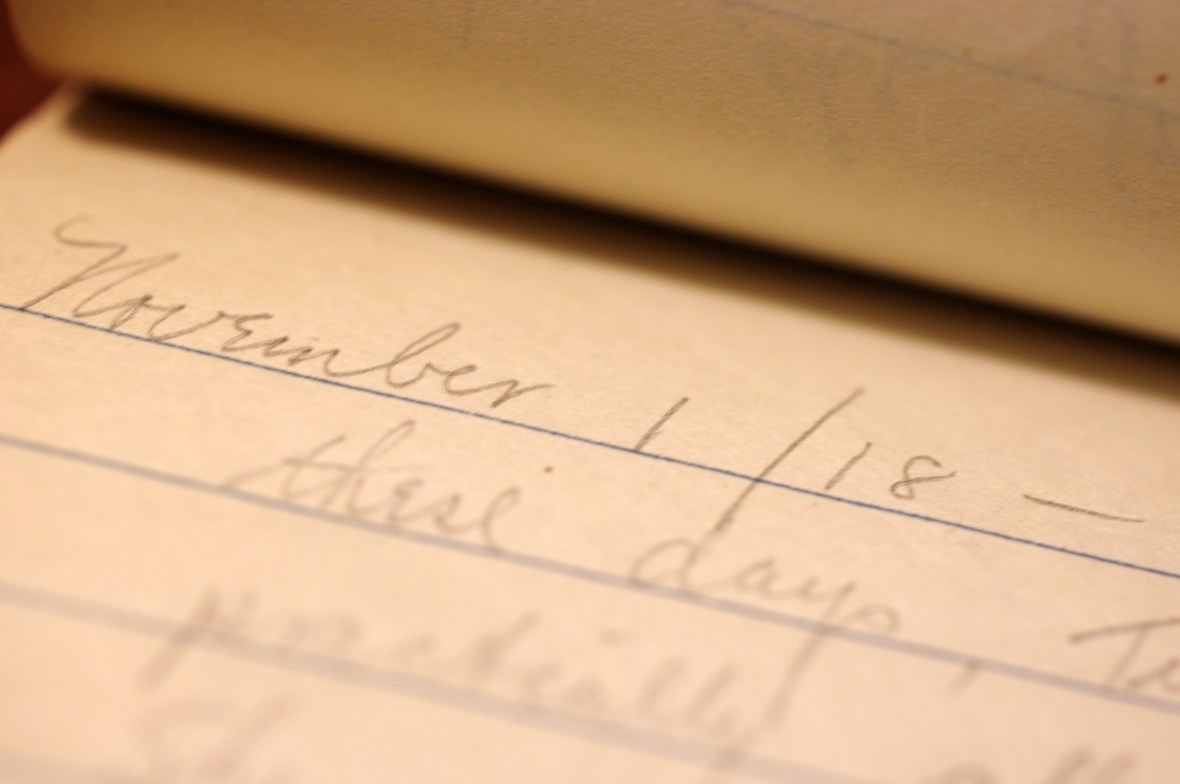 November 1/18 —
these days, To
practically